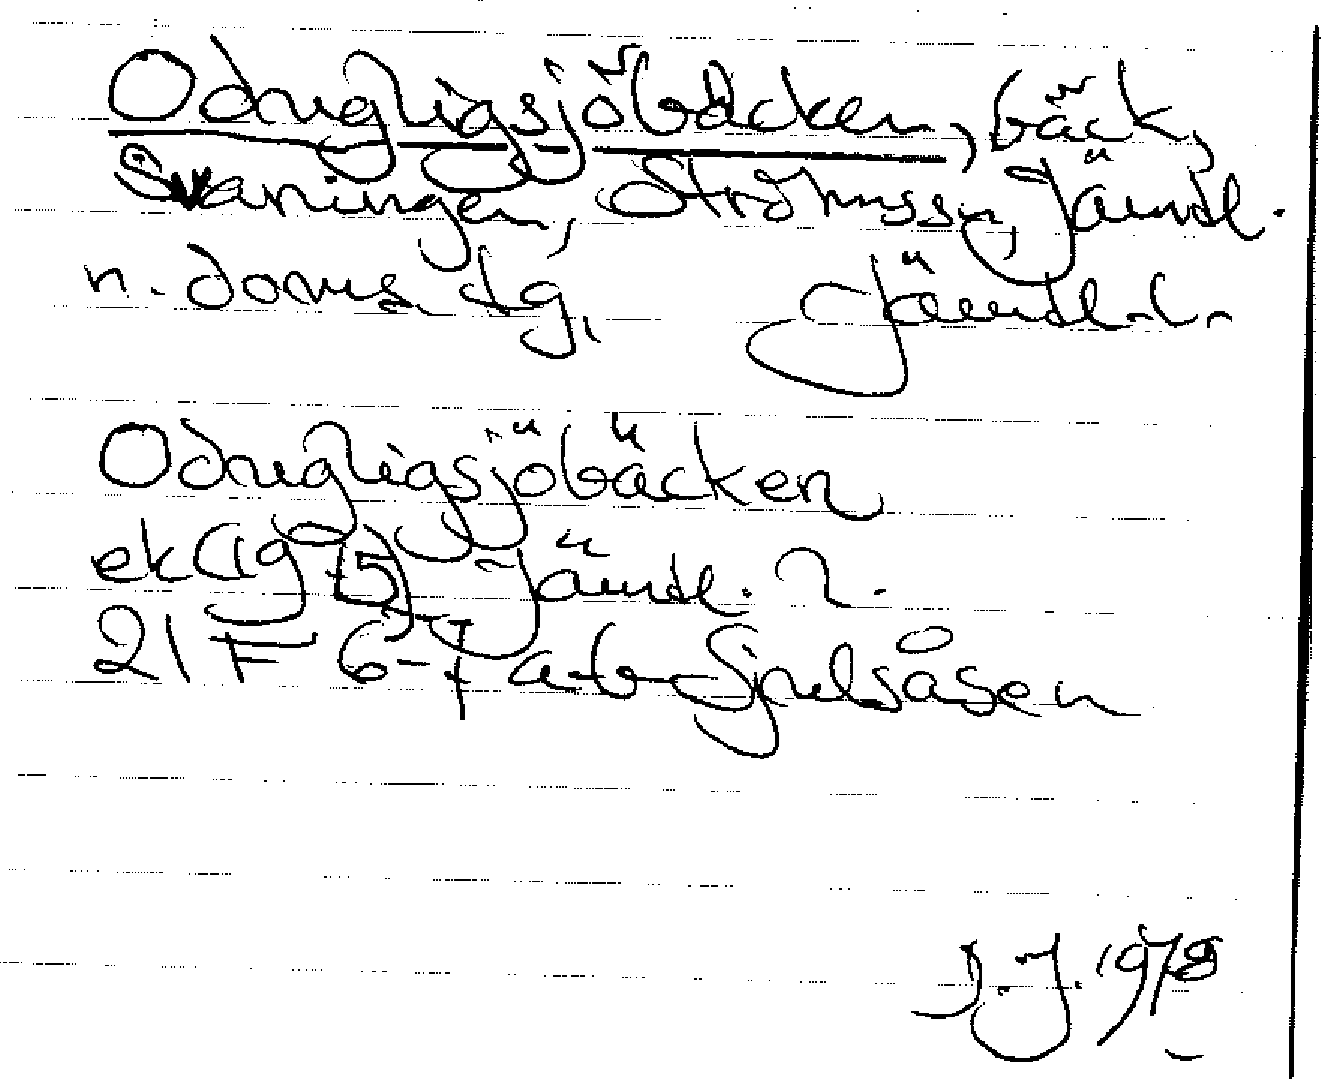 Odugligsjöbäcken, bäck,
Svaningen, Ströms sn, Jämtl.
n. doms dg, Jämtl. l.
Odugligsjöbäcken
ek (19 Jämtl. l.
21 F 6-7 a-b Sjulsåsen
J.J. 1978